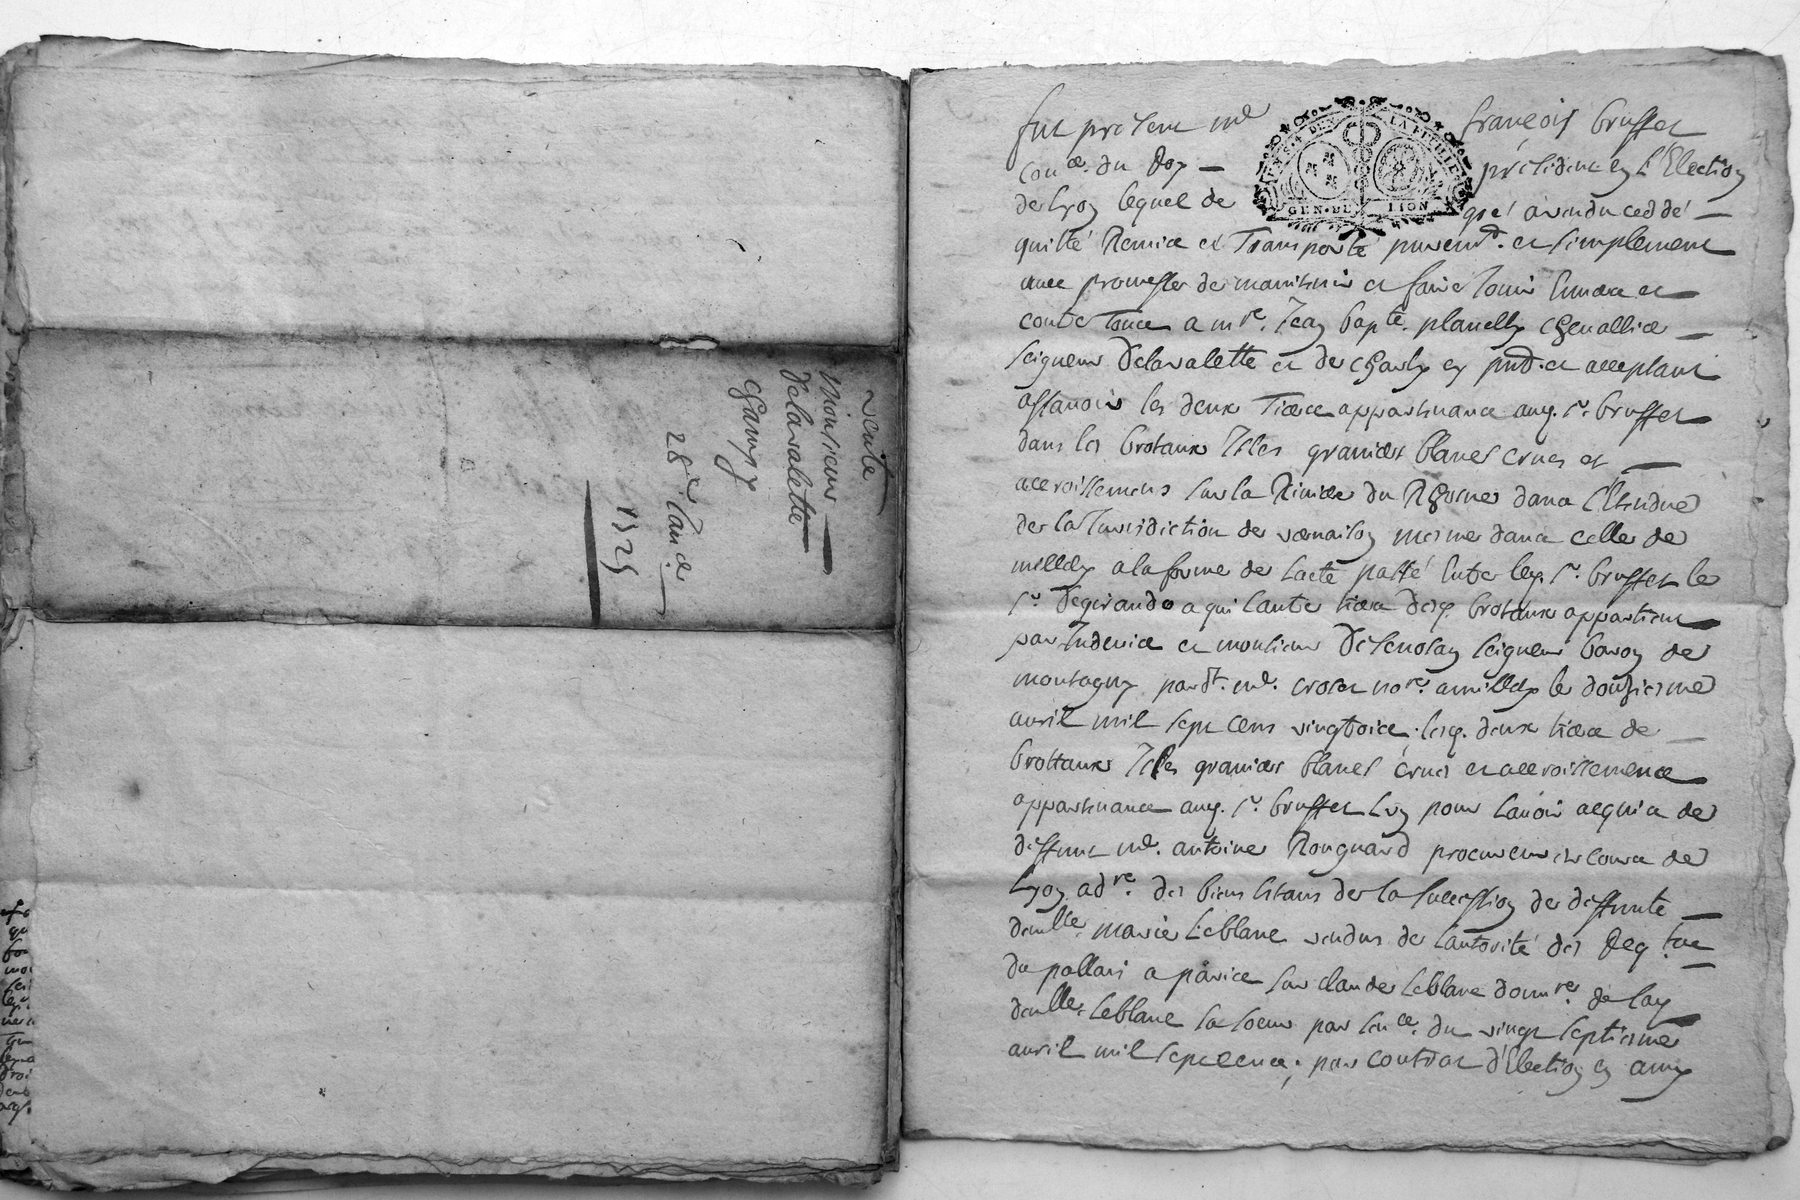 vente
Monsieur
Delavalette
Champy
28e. Jan er.
1725
fut present me françois brusset
TENS. DEN. LA FE
GEN. DE LION
con er. du Roy président en l'Election
de Lyon lequel de gré a vendu ceddé
quitté Remis et Transporté purem t. et simplement
avec promesse de maintenir et faire Jouir Envers et
contre Tous a mre. Jean bapte. planelly chevallier
seigneur Delavalette et de charly cy pnt. et acceptant
assavoir les deux Tiers appartenants aud. sr. brusset
dans les brotaux Isles graviers blancs crues et
accroissemens sur la Riviere du Rhosne dans l'Etendue
de la Jurisdiction de vernaison mesme dans celle de
millery a la forme de lacte passé Entre led. sr. brusset le
sr. Degerando a qui lautre tiers desd. brotaux appartient
par Indevis et monsieur Desenozan seigneur baron de
montagny pardt. me. crozet nore. a millery le douzieme
avril mil sept cens vingt trois, lesd. deux tiers de
brottaux Isles graviers blancs crues et accroissements
appartenants aud. sr. brusset Luy pour lavoir acquis de
deffunt me. antoine Rougnard procureur es cours de
Lyon adre. des biens Estans de la succession de deffunte
demlle. marie Leblanc vendus de lautorité des Req. tes
du pallais a paris sur claude Leblanc donnre. de lad.
demlle. Leblanc sa soeur par sen ce. du vingt septieme
avril mil sept cens; par contrat d'Election en amy